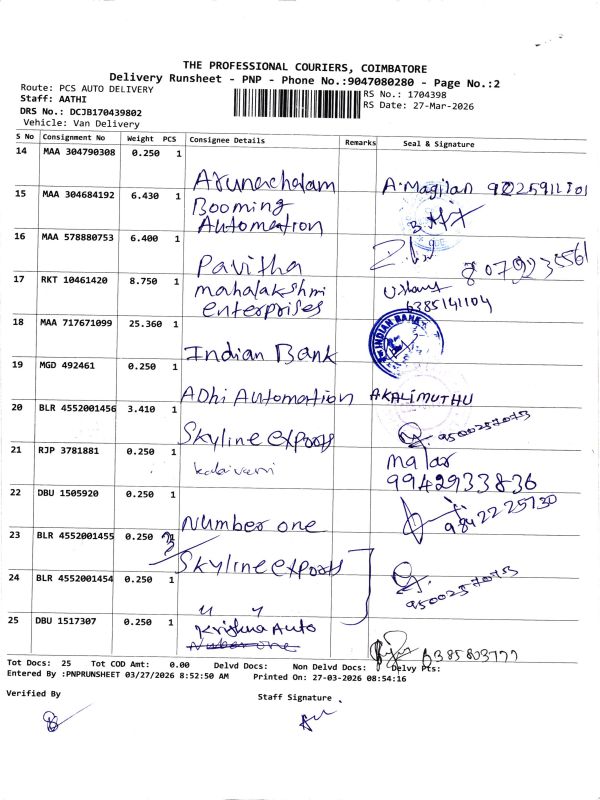 THE PROFESSIONAL COURIERS, COIMBATORE
Delivery Runsheet - PNP - Phone No.:9047080280 - Page No.:2
Route: PCS AUTO DELIVERY
Staff: AATHI
DRS No.: DCJB170439802
Vehicle: Van Delivery
RS No.: 1704398
RS Date: 27-Mar-2026
S No Consignment No Weight PCS Consignee Details Remarks Seal & Signature
14 MAA 304790308 0.250 1
Arunachalam A.Magilan
15 MAA 304684192 6.430 1
Booming
Automation
16 MAA 578880753 6.400 1
Pavitha
17 RKT 10461420 8.750 1
mahalakshmi
enterprises 6385141104
18 MAA 717671099 25.360 1
Indian Bank INDIAN BANK
19 MGD 492461 0.250 1
ADhi Automation AKALIMUTHU
20 BLR 4552001456 3.410 1
Skyline exports 9500257073
21 RJP 3781881 0.250 1
kalaivani malar
9942933836
22 DBU 1505920 0.250 1
Number one 9842225730
23 BLR 4552001455 0.250
Skyline exports
24 BLR 4552001454 0.250 1
" " 9500257073
25 DBU 1517307 0.250 1
Krishna Auto
Number one
Tot Docs: 25 Tot COD Amt: 0.00 Delvd Docs: Non Delvd Docs: Delvy Pts:
Entered By :PNPRUNSHEET 03/27/2026 8:52:50 AM Printed On: 27-03-2026 08:54:16
Verified By Staff Signature